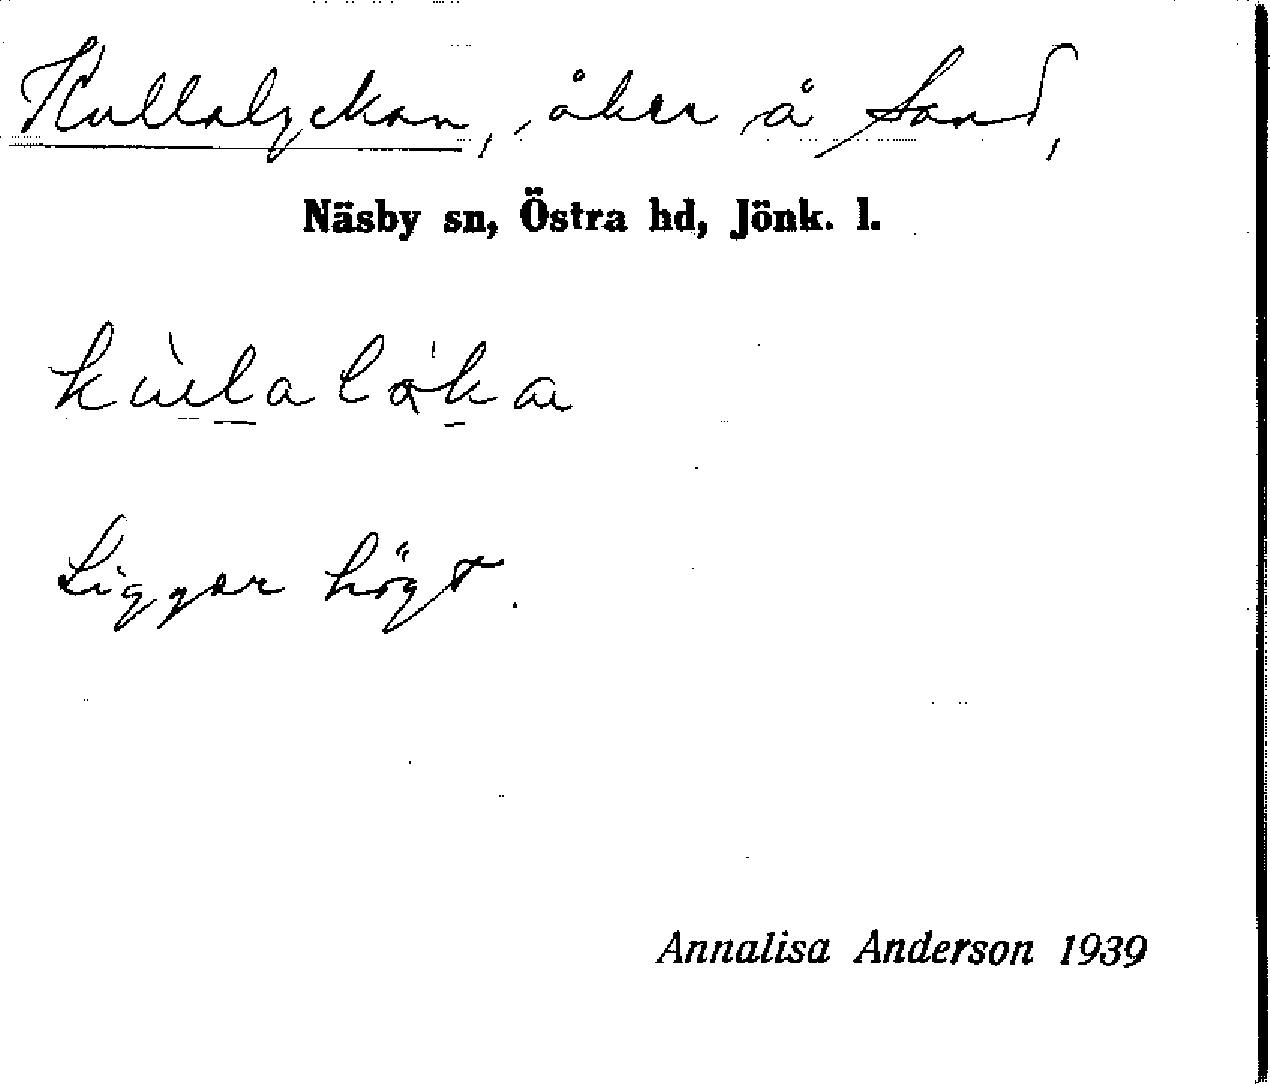 Kullalyckan, åker å Sand,
Näsby sn, Östra hd, Jönk. l.
Ligger högt.
Annalisa Anderson 1939